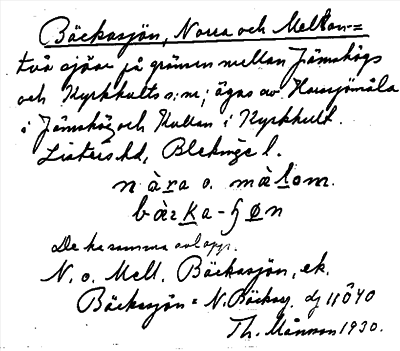 Bäckasjön, Norra och Mellan-=
två sjöar på gränsen mellan Jämshögs
och Kyrkhults s:nr; ägas av Hemsjömåla
i Jämshög och Kullan i Kyrkhult.
Listers hd, Blekinge l.
nàra o. màlom.
bàrka-ʃøn
De ha samma avlopp.
N. o. Mell. Bäckasjön, ek.
Bäckasjön = N. Bäckasj. dj 11 Ö 40
Th. Månsson 1930.